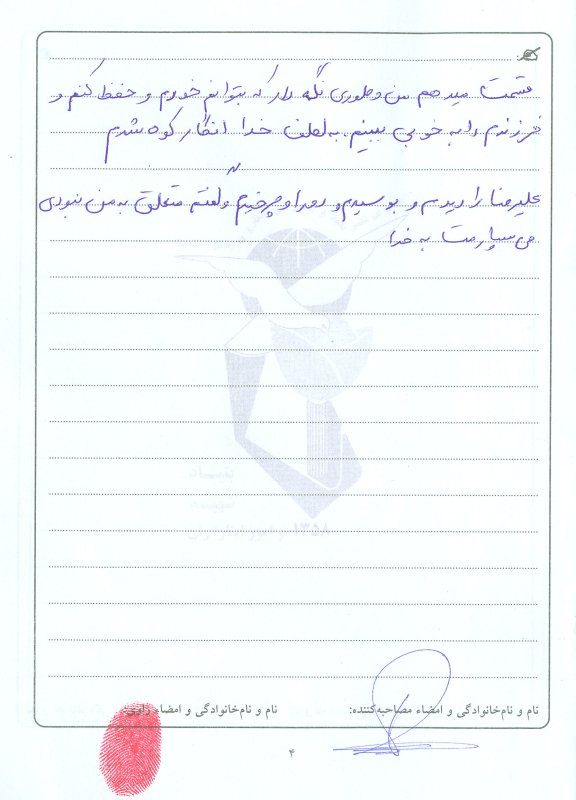 قسمت میدهم من و طوری نگه دار که بتوانم خودم و حفظ کنم و
فرزندم را به خوبی ببینم. به لطف خدا انگار کوه شدم
علیرضا را دیدم و بوسیدم و دور او چرخیدم و گفتم متعلق به من نبودی
می سپارمت به خدا
بنیاد
۱۳۵۸
نام و نام‌خانوادگی و امضاء مصاحبه‌کننده:
نام و نام‌خانوادگی و امضاء راوی:
۴